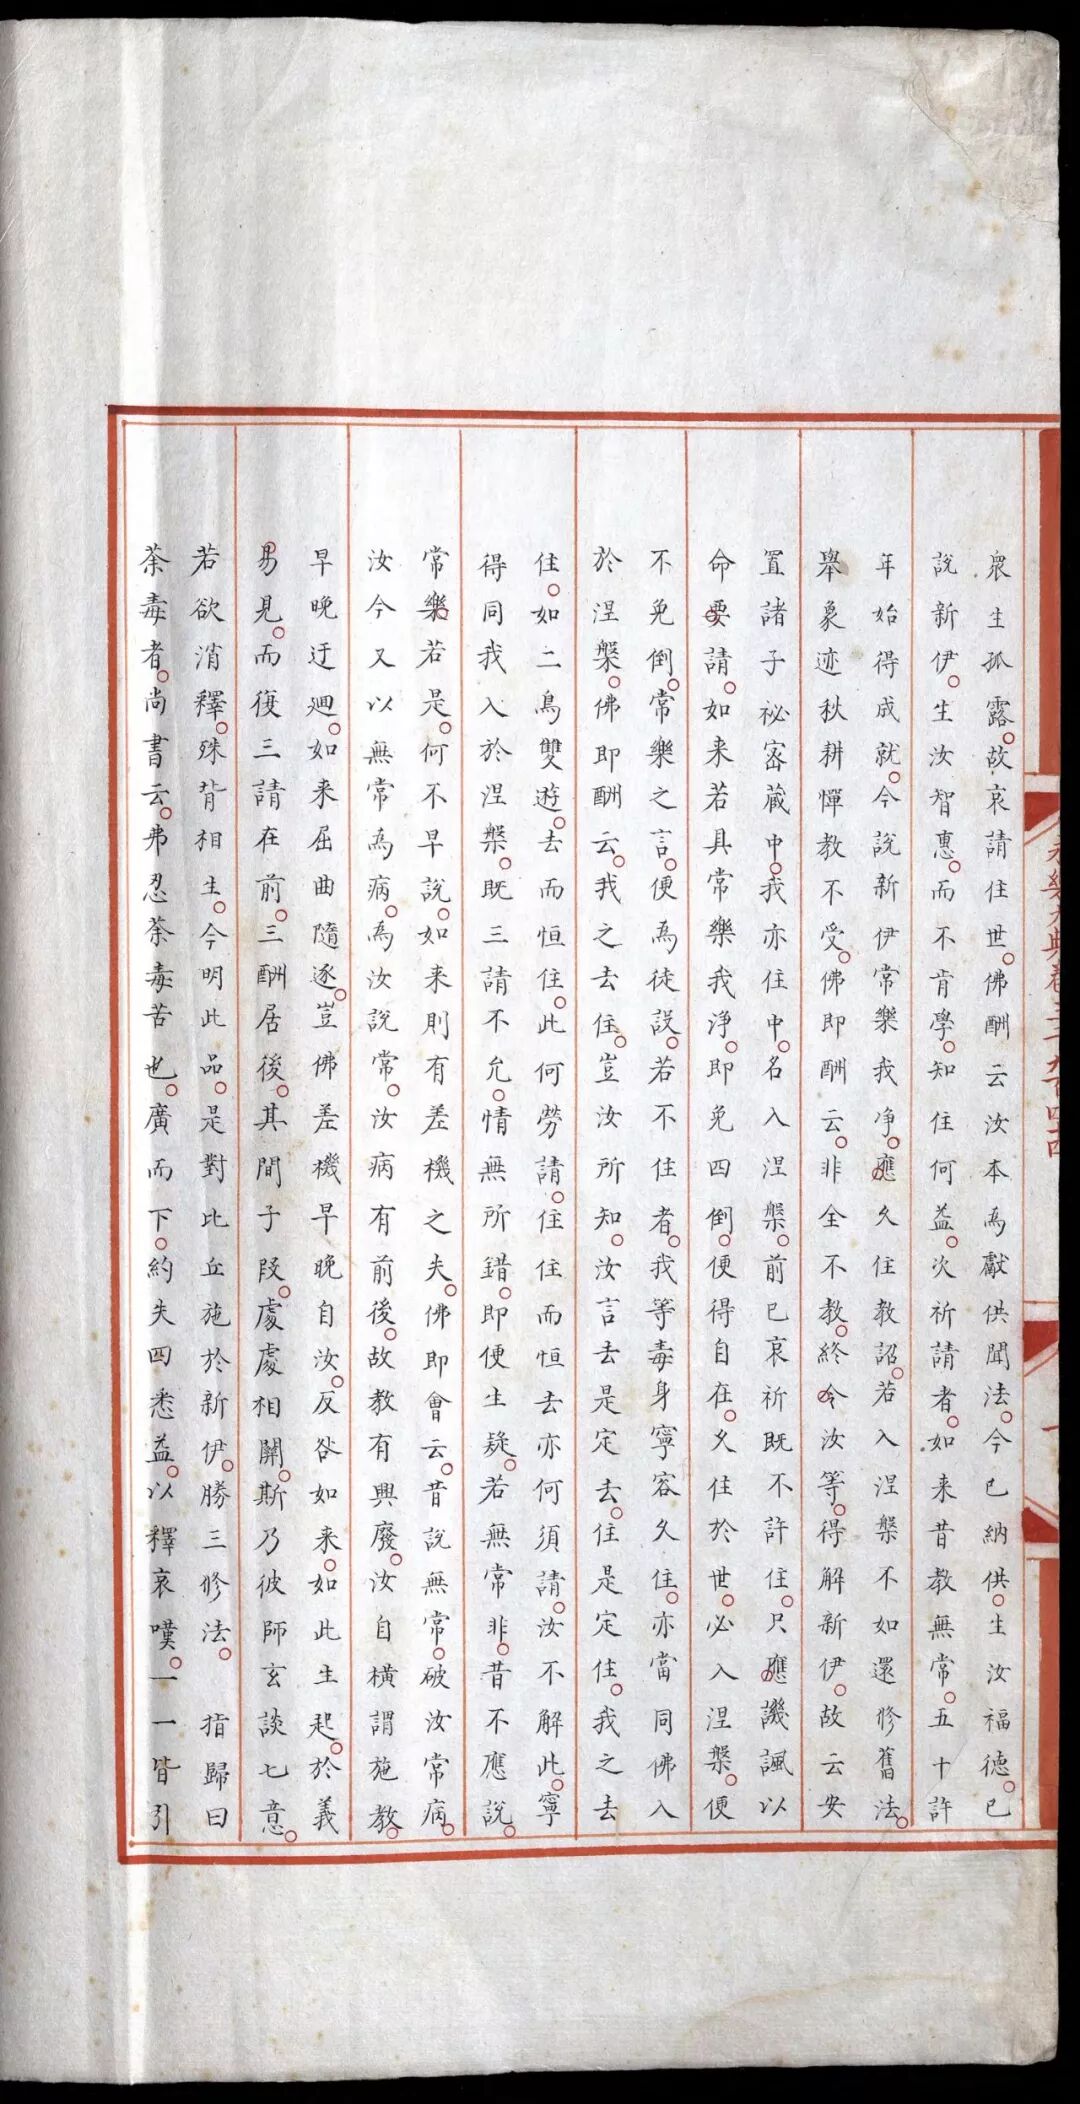 永樂大典卷三千九百四十四
一
衆生孤露。故哀請住世。佛酬云汝本為獻供聞法。今已納供。生汝福德。已
說新伊。生汝智惠。而不肯學。知住何益。次祈請者。如来昔教無常。五十許
年始得成就。今說新伊常樂我净。應久住教詔。若入涅槃不如還修舊法。
舉象迹秋耕憚教不受。佛即酬云。非全不教。終令汝等。得解新伊。故云安
置諸子祕密蔵中。我亦住中。名入涅槃。前已哀祈既不許住。只應譏諷以
命要請。如来若具常樂我淨。即免四倒。便得自在。久住於世。必入涅槃。便
不免倒。常樂之言。便為徒設。若不住者。我等毒身寧容久住。亦當同佛入
於涅槃。佛即酬云。我之去住。豈汝所知。汝言去是定去。住是定住。我之去
住。如二鳥雙遊。去而恒住。此何勞請。住住而恒去亦何須請。汝不解此。寧
得同我入於涅槃。既三請不允。情無所錯。即便生疑。若無常非。昔不應說。
常樂若是。何不早說。如来則有差機之失。佛即會云。昔說無常。破汝常病。
汝今又以無常為病。為汝說常。汝病有前後。故教有興廢。汝自橫謂施教。
早晚迂迴。如来屈曲隨逐。豈佛差機早晚自汝。反咎如来。如此生起。於義
易見。而復三請在前。三酬居後。其間子段。處處相關。斯乃彼師玄談七意。
若欲消釋。殊背相生。今明此品。是對比丘施於新伊。勝三修法。 指歸曰
荼毒者。尚書云。弗忍荼毒苦也。廣而下。約失四悉益。以釋哀嘆。一一皆引